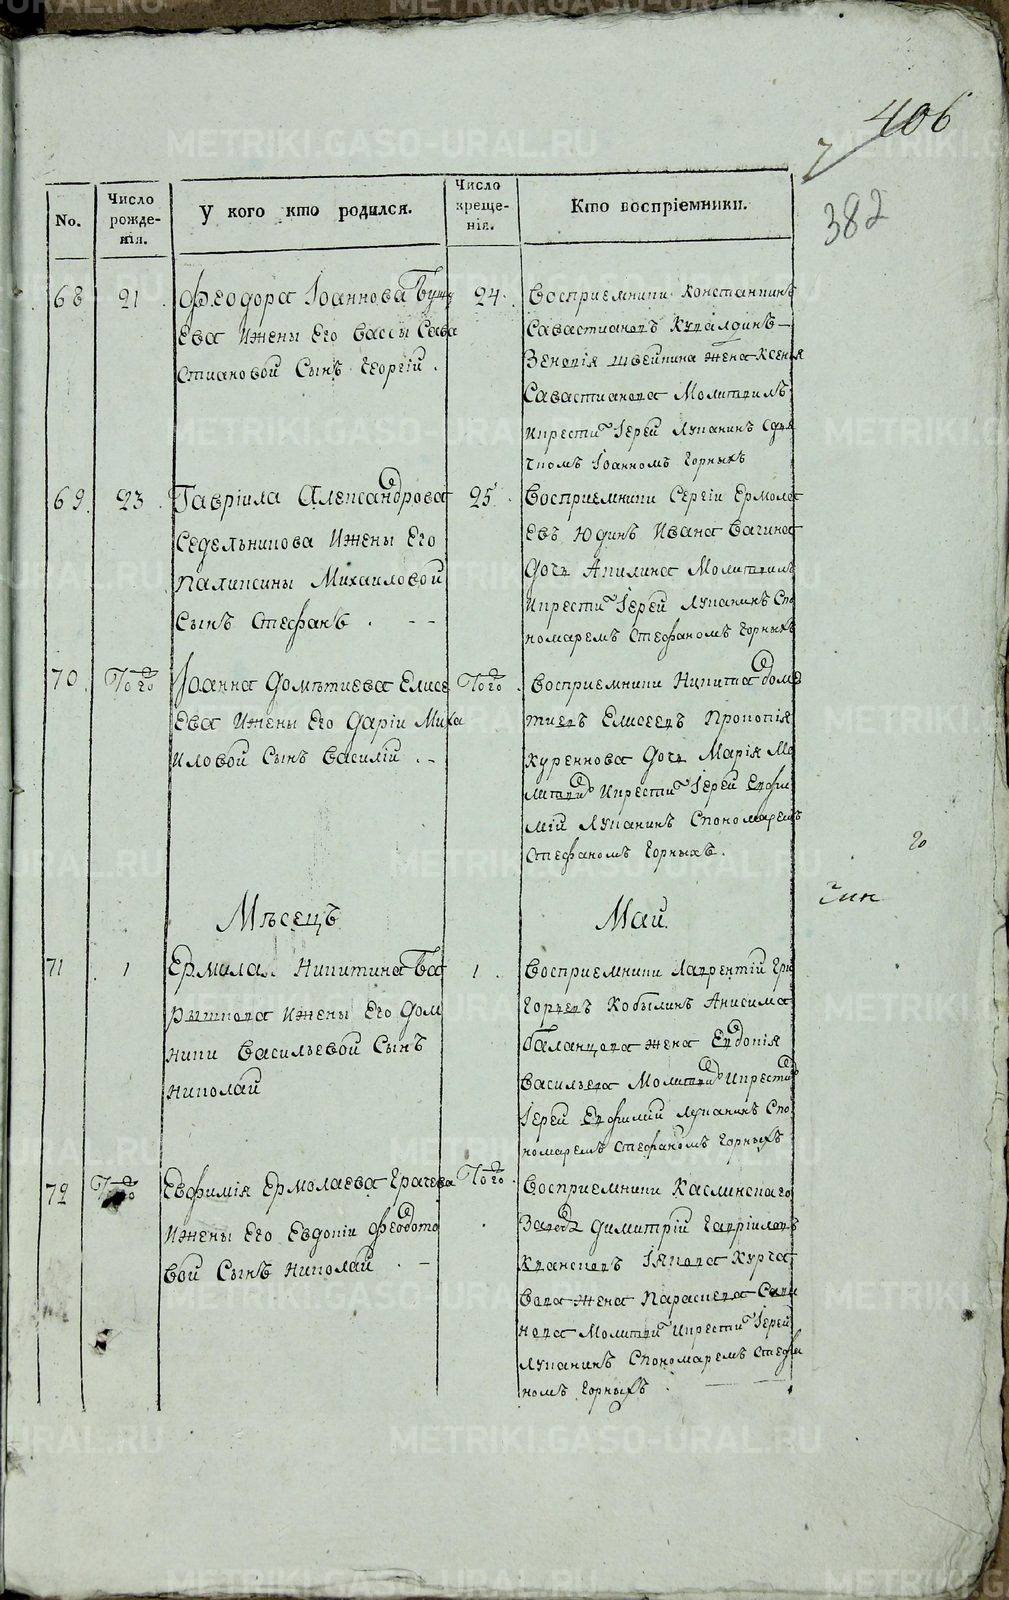 406
382
No.
Число рожде-нія.
У кого кто родился.
Число креще-нія.
Кто воспріемники.
68
21
Феодора Іоаннова
Ева Ижены Его Вассы Сева
стиановой Сынъ Георгій.
24.
Восприемники Константинъ
Савастиановъ
жена Ксенія
Савастианова Молитвилъ
Икрести Іерей Лупанинъ Сдья
чкомъ Іоанномъ Горныхъ
69.
23.
Гавріила Александрова
Седельникова Ижены Его
Палипсины Михаиловой
Сынъ Стефанъ. - -
25.
Восприемники Сергій Ермола
Евъ Юдинъ Ивана Вагина
Дочь Акилина Молитвилъ
Икрести Іерей Лупанинъ Спо
номаремъ Стефаномъ Горныхъ
70.
Того
Іоанна Дометиева Елисе
Ева Ижены Его Даріи Миха
Иловой Сынъ Василій. -
Того.
Восприемники Никита Доме
тиевъ Елисеевъ Прокопія
Куреннова Дочь Марія Мо
литвилъ Икрести Іерей Евфи
мій Лупанинъ Спономаремъ
Стефаномъ Горныхъ.
Мѣсецъ
Май.
71
1
Ермила Никитина Ба
рышкова Ижены Его Дом
ники Васильевой Сынъ
Николай
1.
Восприемники Лаврентій Гри
горьевъ Кобылинъ Анисима
Баланцова жена Евдокія
Васильева Молитвилъ Икрестилъ
Іерей Евфимій Лупанинъ Спо
номаремъ Стефаномъ Горныхъ
72
Того
Евфимія Ермолаева Грачева
Ижены Его Евдокіи Феодото
вой Сынъ Николай. -
Того.
Восприемники Каслинскаго
Завода Димитрій Гавріиловъ
Іякова Курча
вова жена Параскева Сави
нова Молитви Икрести Іерей
Лупанинъ Спономаремъ Стефа
номъ Горныхъ.
METRIKI.GASO-URAL.RU